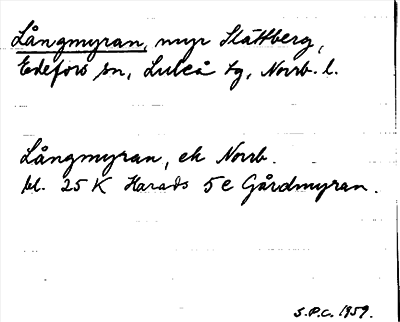 Långmyran, myr Slättberg,
Edefors sn, Luleå tg, Norrb. l.
Långmyran, ek Norrb.
bl. 25 K Harads 5 e Gårdmyran.
S.P.C. 1959.